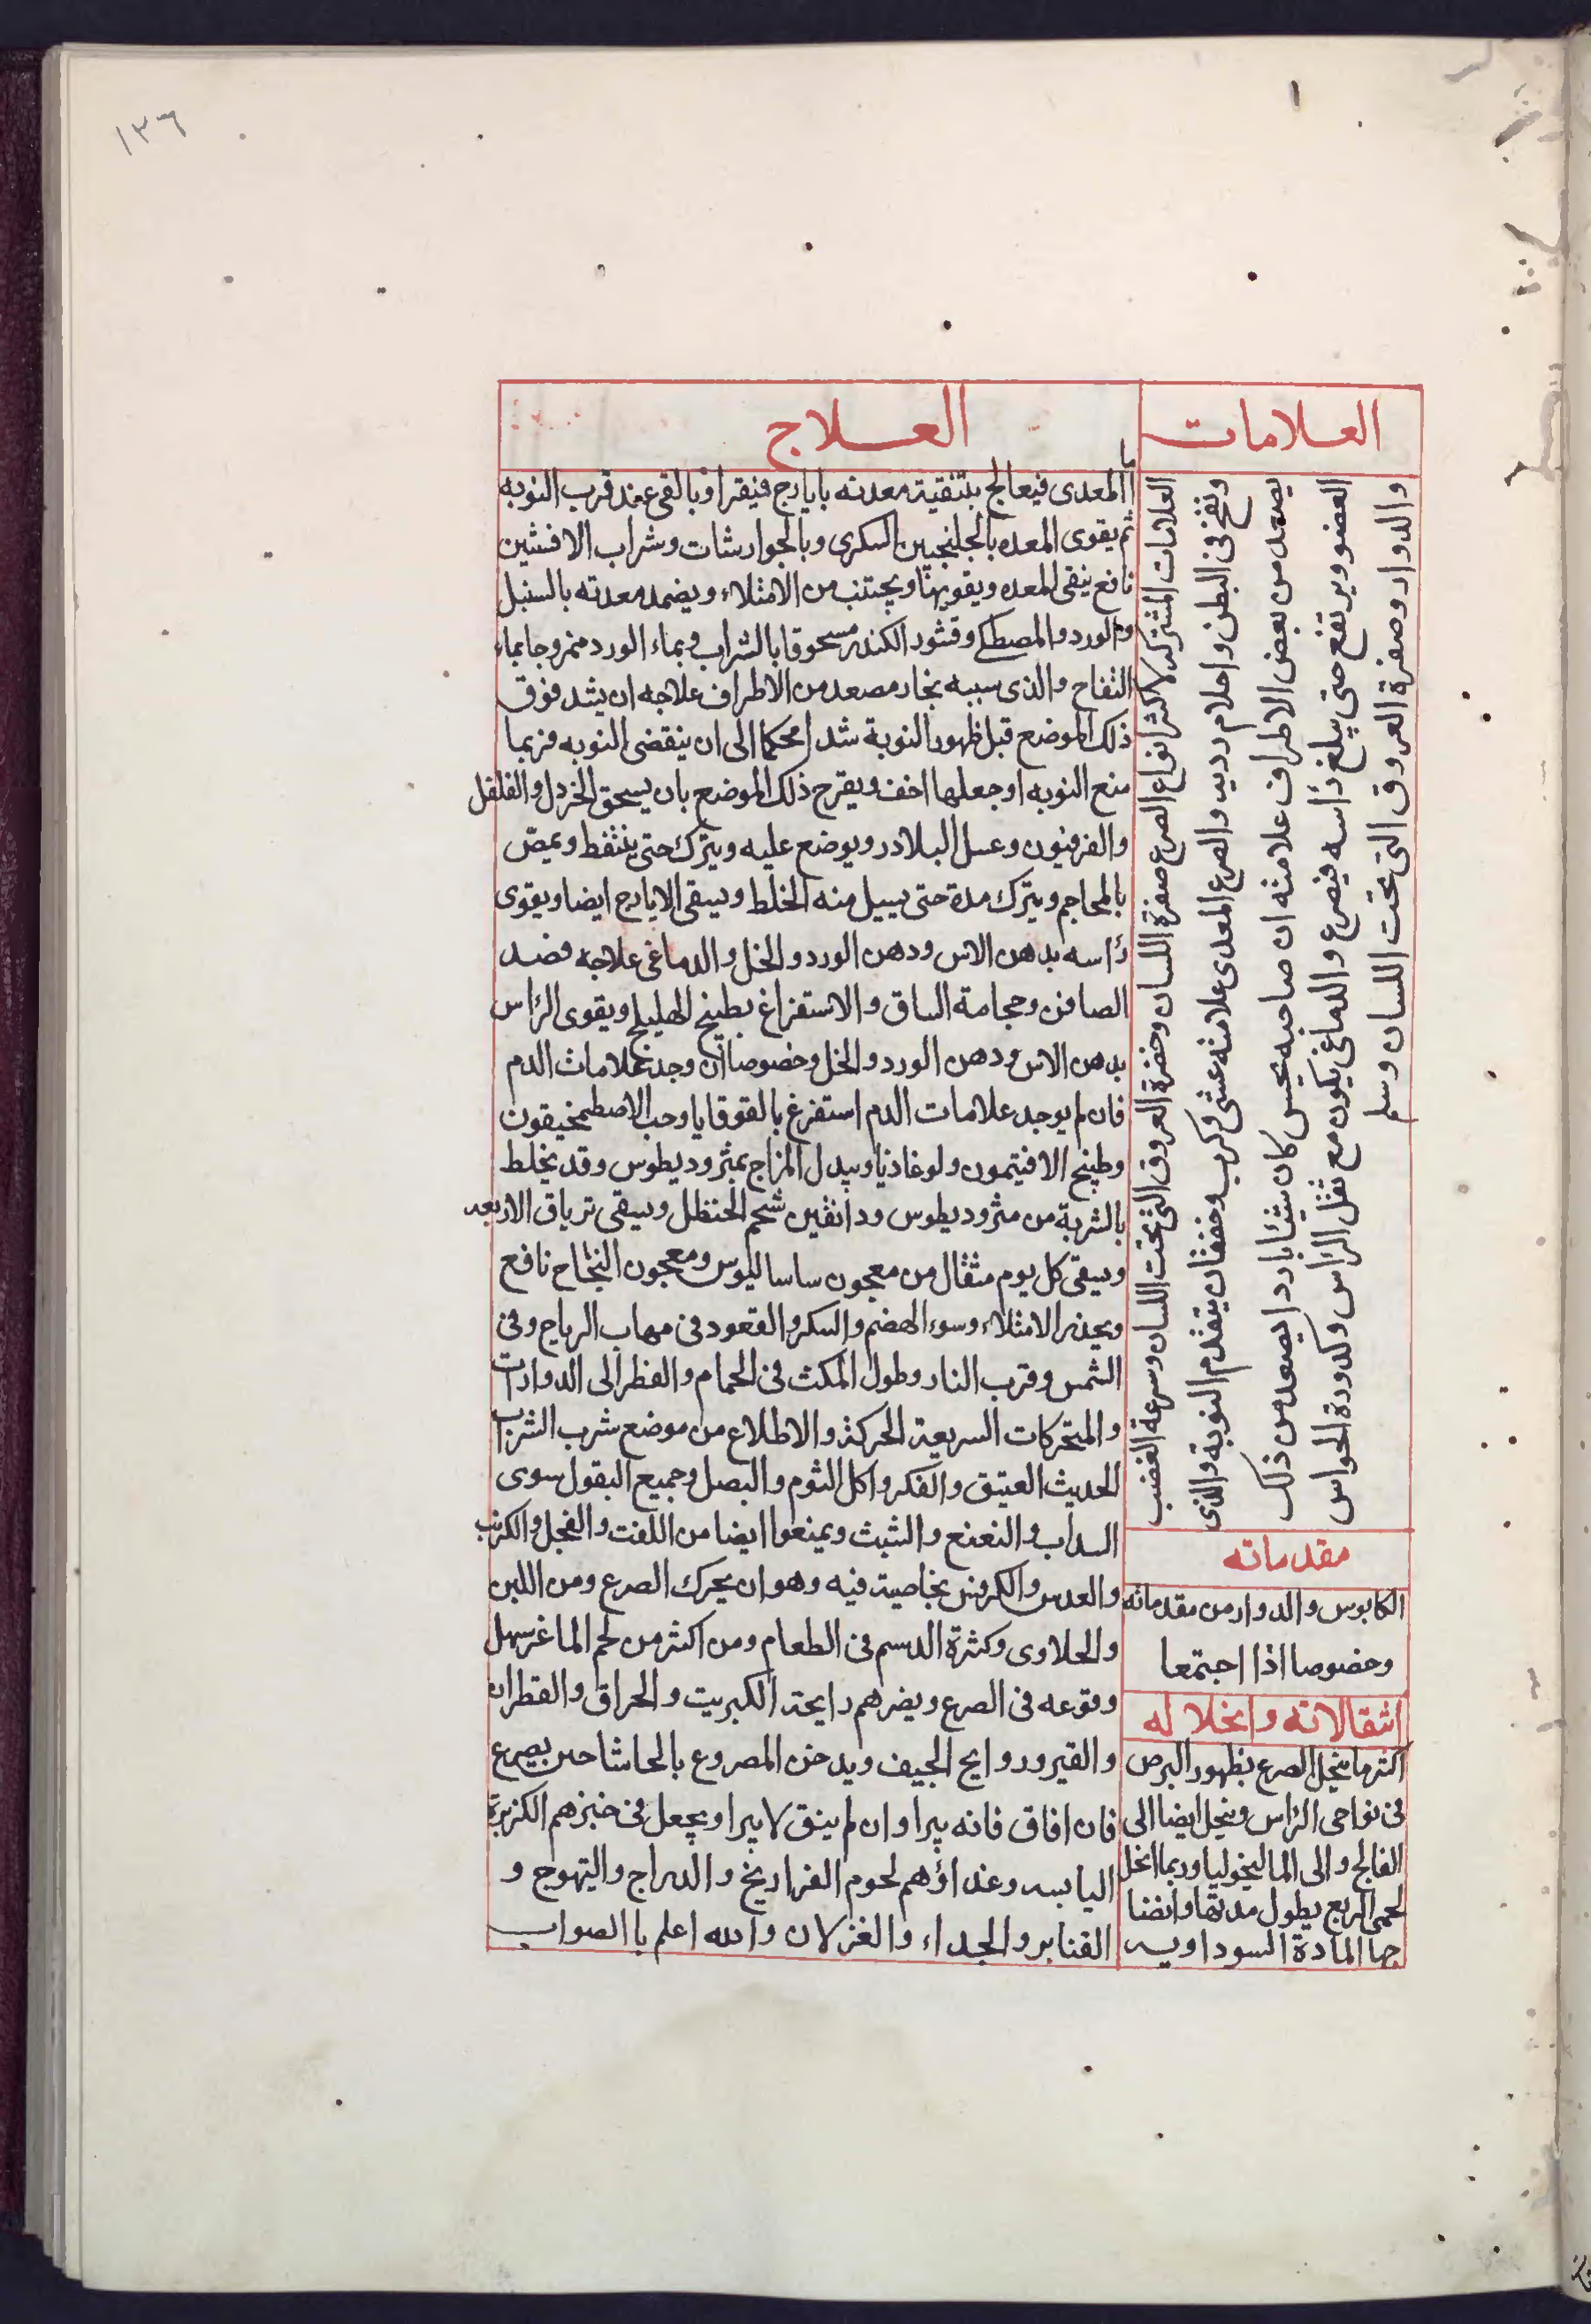 ١٣٦
العلامات
العلامات المشتركه لاكثر انواع الصرع صفرة اللسان وخضرة العروق التى تحت اللسان وسرعة الغضب
ونفخ فى البطن واحلام رديه والصرع المعدى علامته غشى وكرب وخفقان يتقدم النوبة والذى
يصعد من بعض الاطراف علامته ان صاحبه يحس كان شيئا باردا يصعد من ذلك
العضو ويرتفع حتى يبلغ رأسه فيصرع والدماغى يكون مع ثقل الرأس وكدورة الحواس
والدوار وصفرة العروق التى تحت اللسان وسلم
مقدماته
الكابوس والدوار من مقدماته
وخصوصا اذا اجتمعا
انتقالاته وانحلاله
اكثر ما ينحل الصرع بظهور البرص
فى نواحى الرأس وينحل ايضا الى
الفالج والى الماليخوليا وربما انحل
لحمى الربع يطول مدتها وانضا
جها المادة السوداويه
العلاج
اما المعدى فيعالج بتنقية معدته بايارج فيقرا وبالقى عند قرب النوبه
ثم يقوى المعده بالجلنجبين السكرى وبالجوارشات وشراب الافسنتين
نافع ينقى المعده ويقويها ويجتنب من الامتلاء ويضمد معدته بالسنبل
والورد والمصطكے وقشور الكندر مسحوقا بالشراب وبماء الورد ممزوجا بماء
التفاح والذى سببه بخار مصعد من الاطراف علاجه ان يشد فوق
ذلك الموضع قبل ظهور النوبة شدا محكما الى ان ينقضى النوبه فربما
منع النوبه او جعلها اخف ويقرح ذلك الموضع بان يسحق الخردل والفلفل
والفرفيون وعسل البلادر ويوضع عليه ويترك حتى يتنفط ويمص
بالمحاجم ويترك مدة حتى يسيل منه الخلط ويسقى الايارج ايضا ويقوى
رأسه بدهن الاس ودهن الورد والخل والدماغى علاجه فصد
الصافن وحجامة الساق والاستفراغ بطبيخ الهليلج ويقوى الرأس
بدهن الاس ودهن الورد والخل وخصوصا ان وجد علامات الدم
فان لم يوجد علامات الدم استفرغ بالقوقايا وحب الاصطمخيقون
وطبيخ الافتيمون ولوغاذيا ويبدل المزاج بمثروديطوس وقد يخلط
بالشربة من مثروديطوس ودانقين شحم الحنظل ويسقى ترياق الاربعه
ويسقى كل يوم مثقال من معجون ساساليوس ومعجون النجاح نافع
ويحذر الامتلاء وسوء الهضم والسكر والقعود فى مهاب الرياح وفى
الشمس وقرب النار وطول المكث فى الحمام والنظر الى الدوارات
والمتحركات السريعة الحركة والاطلاع من موضع شرب الشراب
الحديث العتيق والفكر واكل الثوم والبصل وجميع البقول سوى
السداب والنعنع والشبث ويمنعوا ايضا من اللفت والفجل والكرنب
والعدس والكرفس بخاصية فيه وهو ان يحرك الصرع ومن اللبن
والحلاوى وكثرة الدسم فى الطعام ومن اكثر من لحم الماعز سهل
وقوعه فى الصرع ويضرهم رايحة الكبريت والحراق والقطران
والقير وروايح الجيف ويدخن المصروع بالحاشا حين يصرع
فان افاق فانه يبرا وان لم يفق لا يبرا ويجعل فى خبزهم الكزبرة
اليابسه وغداؤهم لحوم الفراريخ والدراج والتيهوج و
القنابر والجداء والغزلان والله اعلم باالصواب